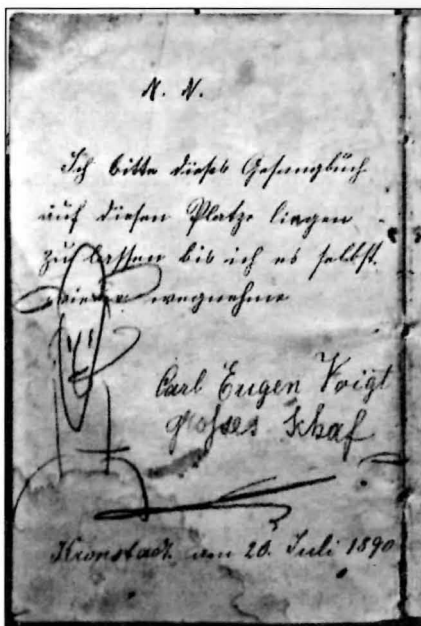 N. N.
Ich bitte dieses Gesangbuch
auf diesen Platze liegen
zu lassen bis ich es selbst
wieder wegnehme
Carl Eugen Voigt
grosses Schaf
Kronstadt am 20. Juli 1890